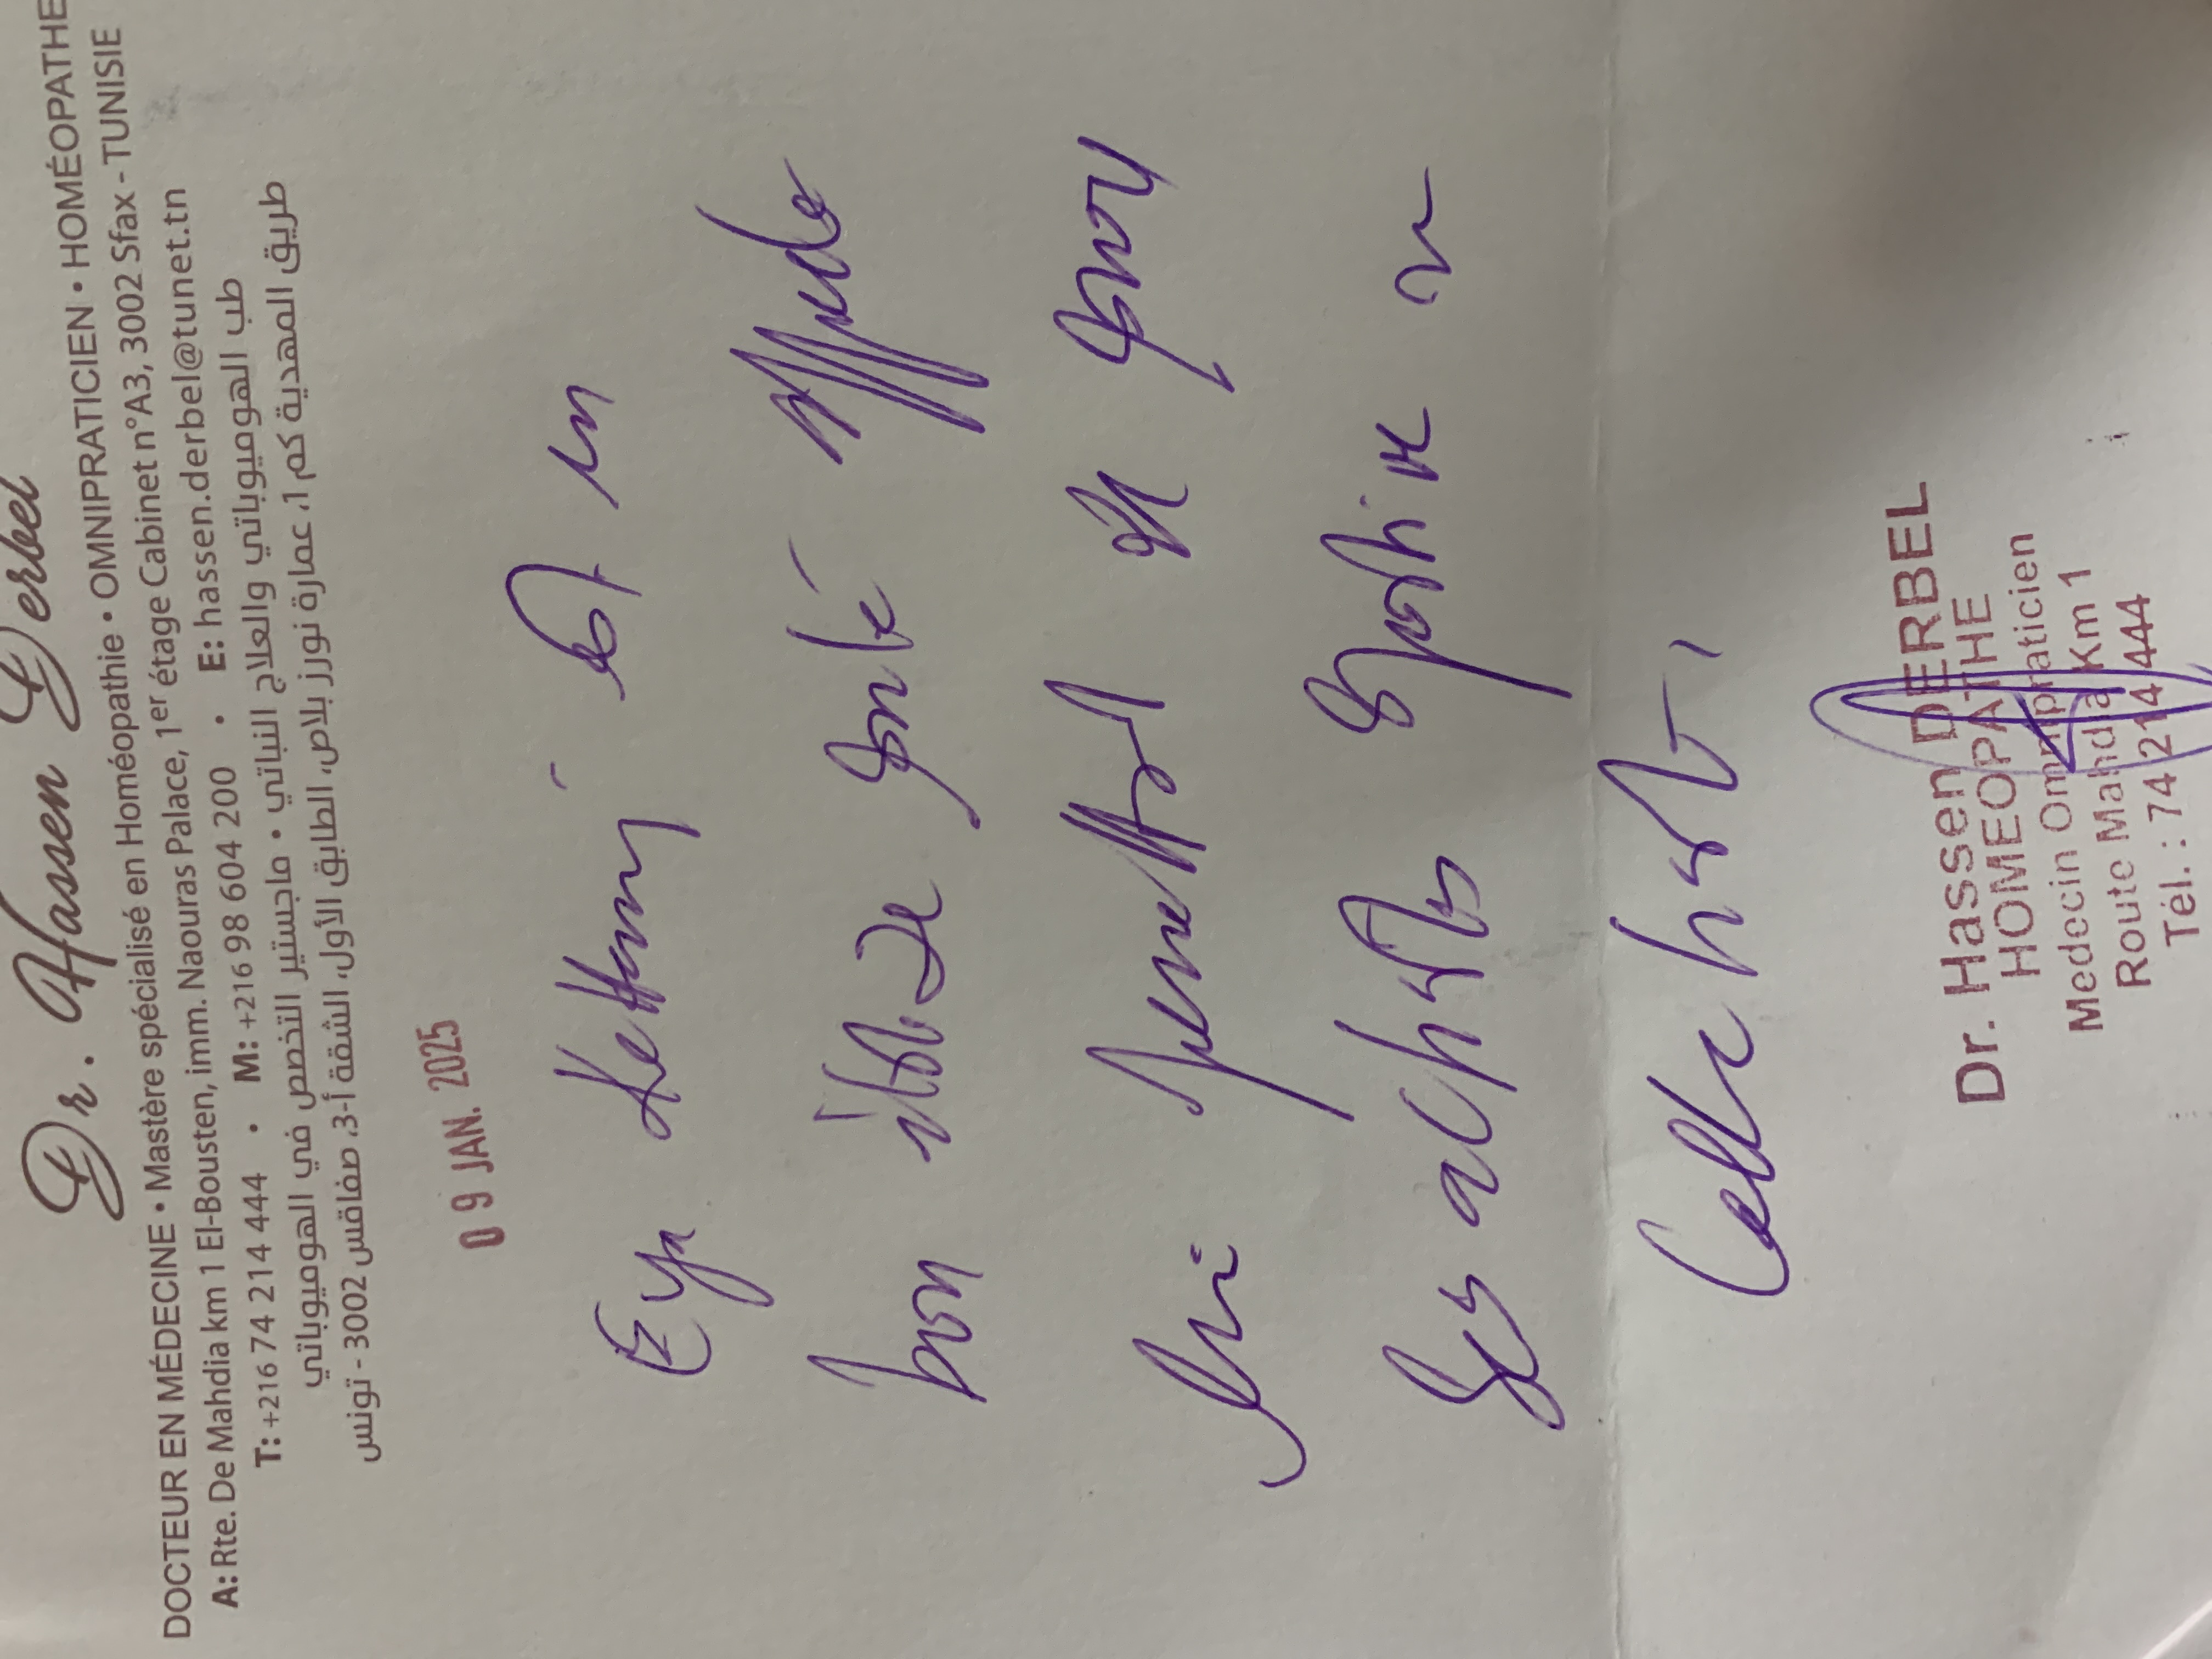 Dr. Hassen Derbel
DOCTEUR EN MÉDECINE • Mastère spécialisé en Homéopathie • OMNIPRATICIEN • HOMÉOPATHE
A: Rte. De Mahdia km 1 El-Bousten, imm. Naouras Palace, 1er étage Cabinet n°A3, 3002 Sfax - TUNISIE
T: +216 74 214 444 • M: +216 98 604 200 • E: hassen.derbel@tunet.tn
طب الهوميوباتي والعلاج النباتي • ماجستير التخصص في الهوميوباتي
طريق المهدية كم 1، عمارة نورز بلاص، الطابق الأول، الشقة أ-3، صفاقس 3002 - تونس
09 JAN. 2025
Eya est en
bon état de santé
lui permettant
les activités
Dr. Hassen DERBEL
HOMEOPATHE
Medecin Omnipraticien
Route Mahdia Km 1
Tél. : 74 214 444